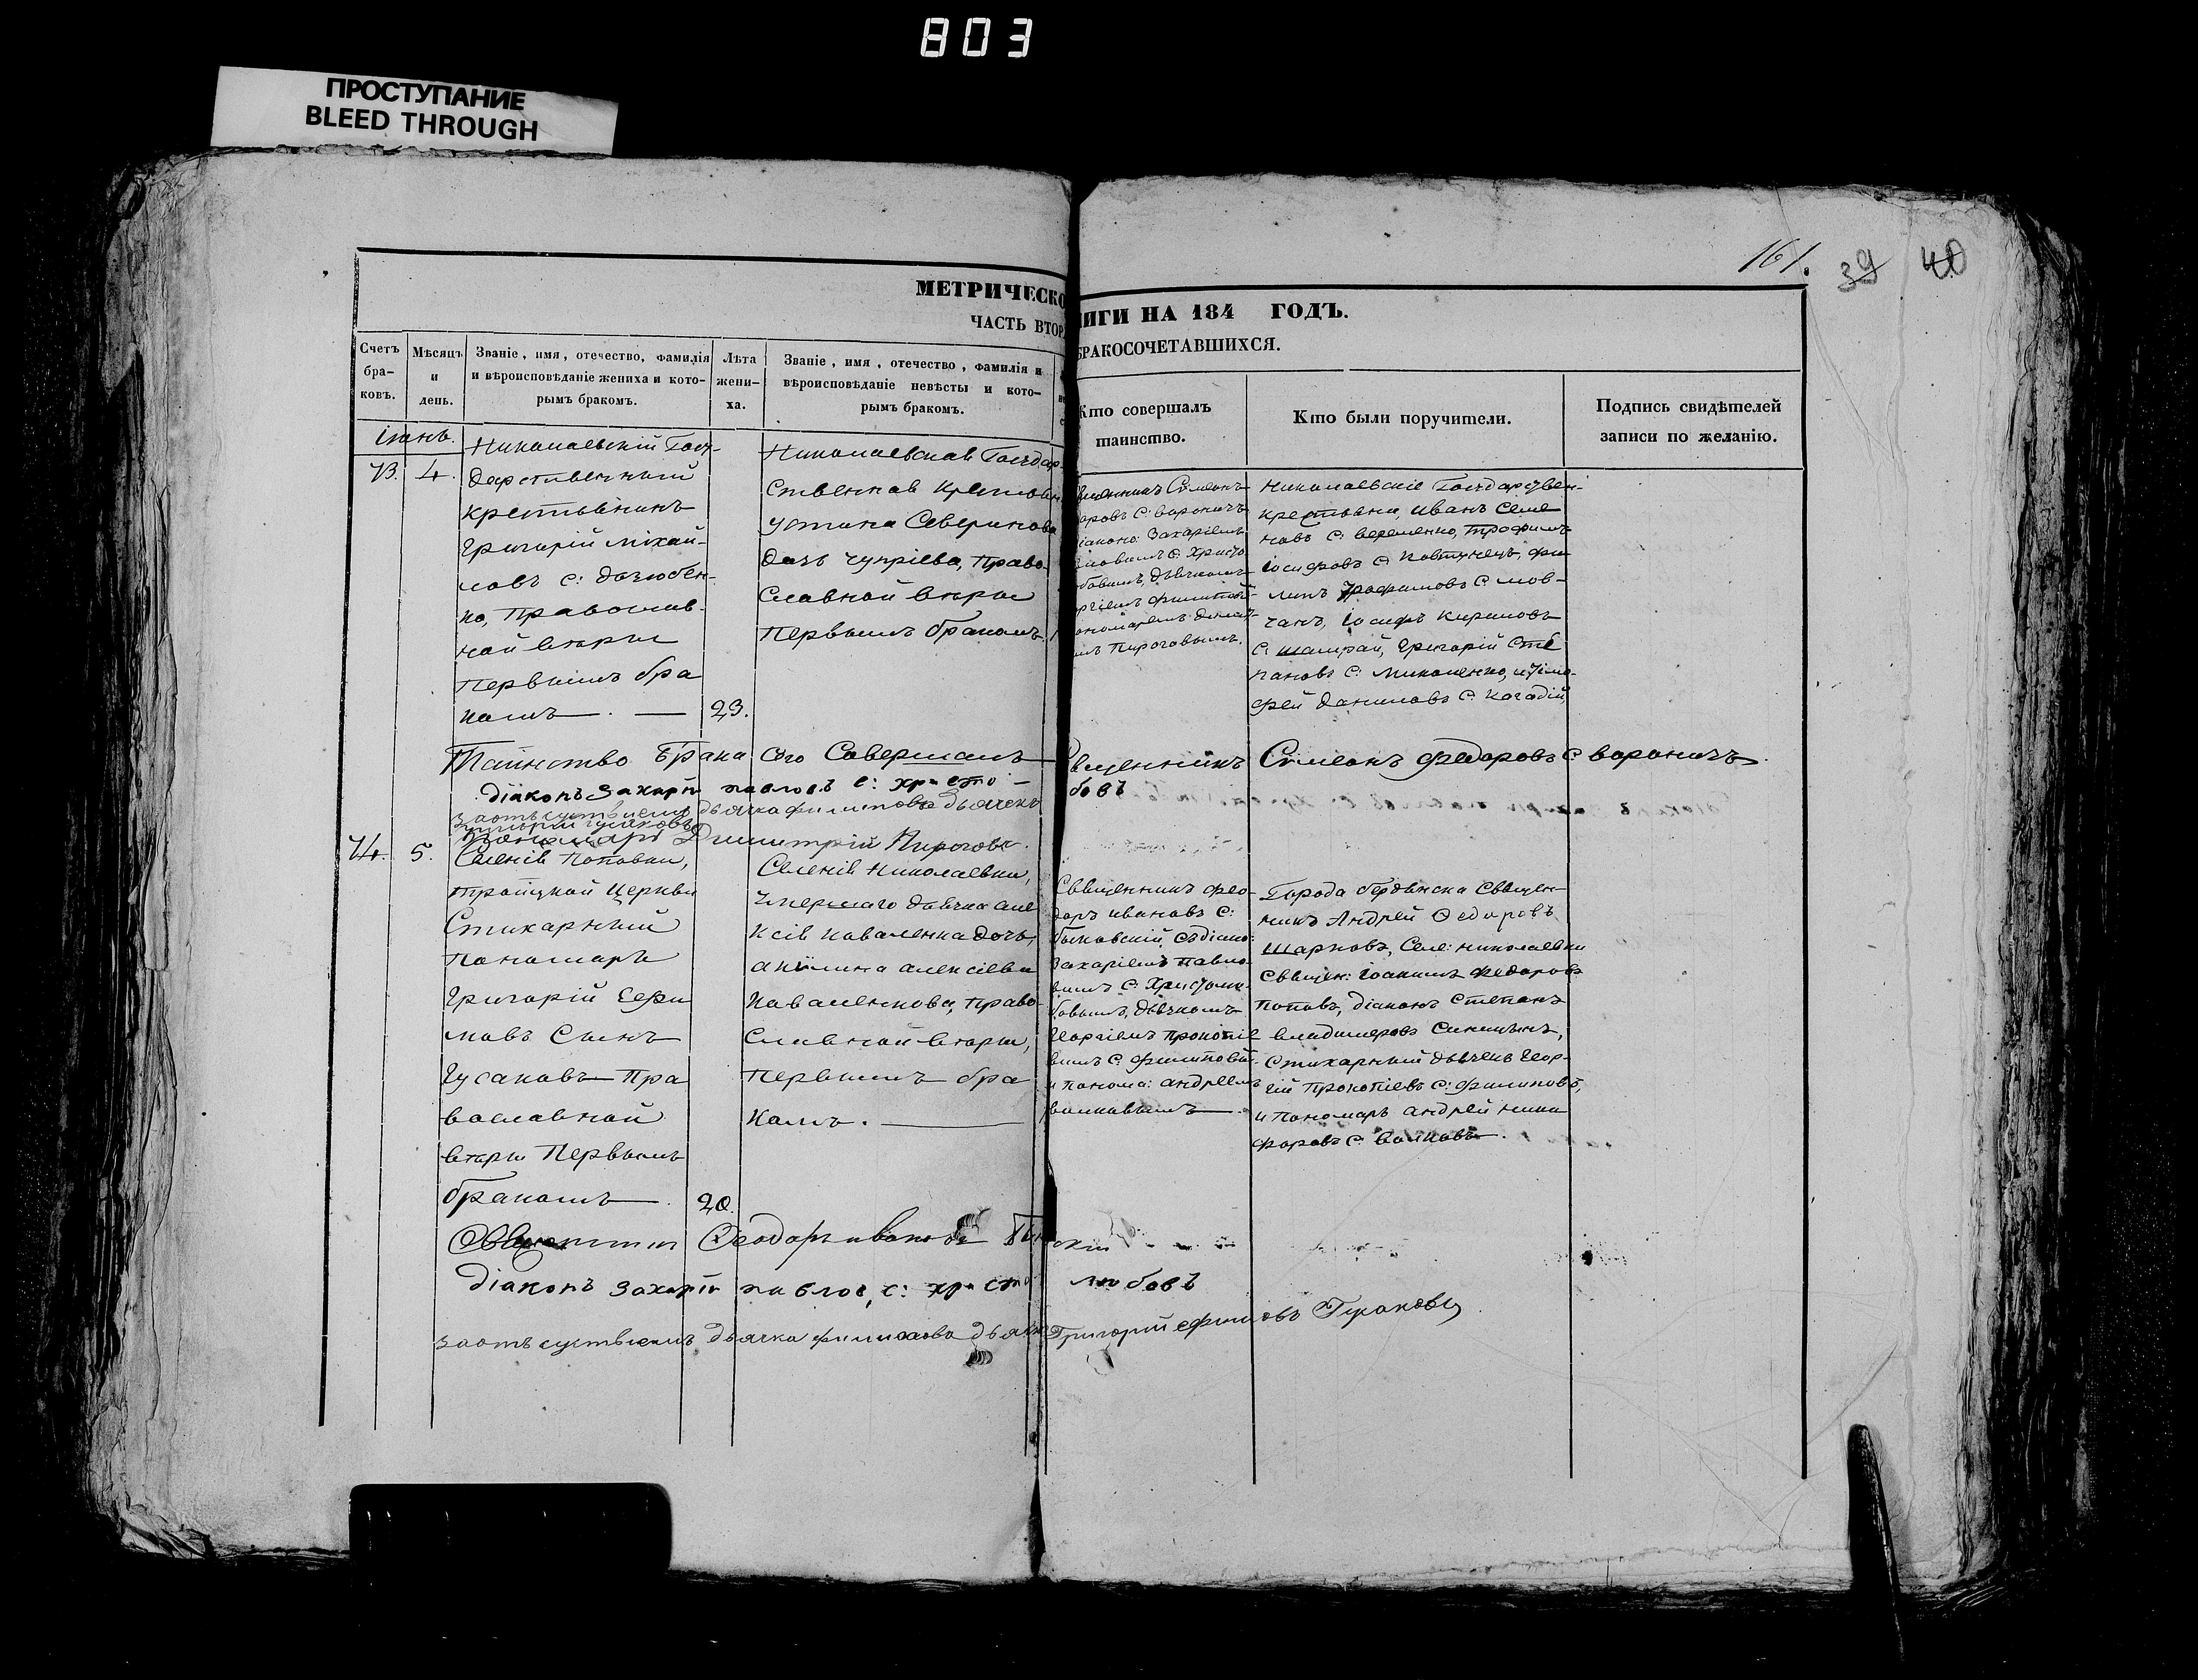 803
ПРОСТУПАНИЕ
BLEED THROUGH
161.
39 40
МЕТРИЧЕСКО
ИГИ НА 184 ГОДЪ.
ЧАСТЬ ВТОР
БРАКОСОЧЕТАВШИХСЯ.
Счетъ
бра-
ковъ.
Мѣсяцъ
и
день.
Званіе, имя, отечество, фамилія
и вѣроисповѣданіе жениха и кото-
рымъ бракомъ.
Лѣта
жени-
ха.
Званіе, имя, отечество, фамилія и
вѣроисповѣданіе невѣсты и кото-
рымъ бракомъ.
Кто совершалъ
таинство.
Кто были поручители.
Подпись свидѣтелей
записи по желанію.
73. 4.
Николаевскій Госу-
дарственный
крестьянинъ
Григорій Михай-
ловъ с:
но, Православ-
ной вѣры
первымъ бра
комъ.
23.
Николаевская Государ
ственная крестьян
устина Северинова
дочь чупріева, Право-
славной вѣры
первымъ бракомъ.
Симеонъ
с: вороничъ
Захаріемъ
с: Христо
бовымъ, дьячкомъ
Пироговымъ.
Николаевскіе Государствен-
крестьяни, иванъ Семе
новъ с: веременко, трофимъ
іосифовъ с: Ковтунецъ, фи
липъ трофимовъ с: мов-
чанъ, іосифъ Кириловъ
с: шамрай, Григорій Сте
пановъ с: Миколенко,
фей даниловъ с:
Таинство Брака сего Совершалъ
Симеонъ Федоровъ с: вороничъ.
діаконъ Захарій павловъ с: христо-
бовъ
за отъсуствіемъ дьячка филипова дьячекъ
Пономарь Димитрій Пироговъ.
74. 5.
Селенія Поповки,
троицкой церкви
Стихарный
пономарь
Григорій Ефи
мовъ Сынъ
Гусаковъ Пра
вославной
вѣры первымъ
бракомъ.
20.
Селенія Николаевки,
умершаго дьячка але
ксія коваленка дочь,
акилина алексіева
коваленкова, право
славной вѣры,
первымъ бра
комъ.
Священникъ Фео-
доръ ивановъ с:
съ діако:
Захаріемъ павло-
вымъ с: Христолю-
бовымъ, дьячкомъ
Георгіемъ прокопіе
вымъ с: филиповы-
и понома: андреемъ
волковымъ
Города бердянска священ-
никъ Андрей Федоровъ
Шарковъ, Селе: николаевки
священ: іоакимъ федоровъ
поповъ, діаконъ Степанъ
владимеровъ
Стихарный дьячекъ Геор-
гій Прокопіевъ с: филиповъ,
и пономарь андрей ники
форовъ с: волковъ.
Феодоръ ивановъ
діаконъ Захарій павлов, с: христо любовъ
за отъсуствіемъ дьячка филипова дьячк Григорій ефимовъ Гусаковъ